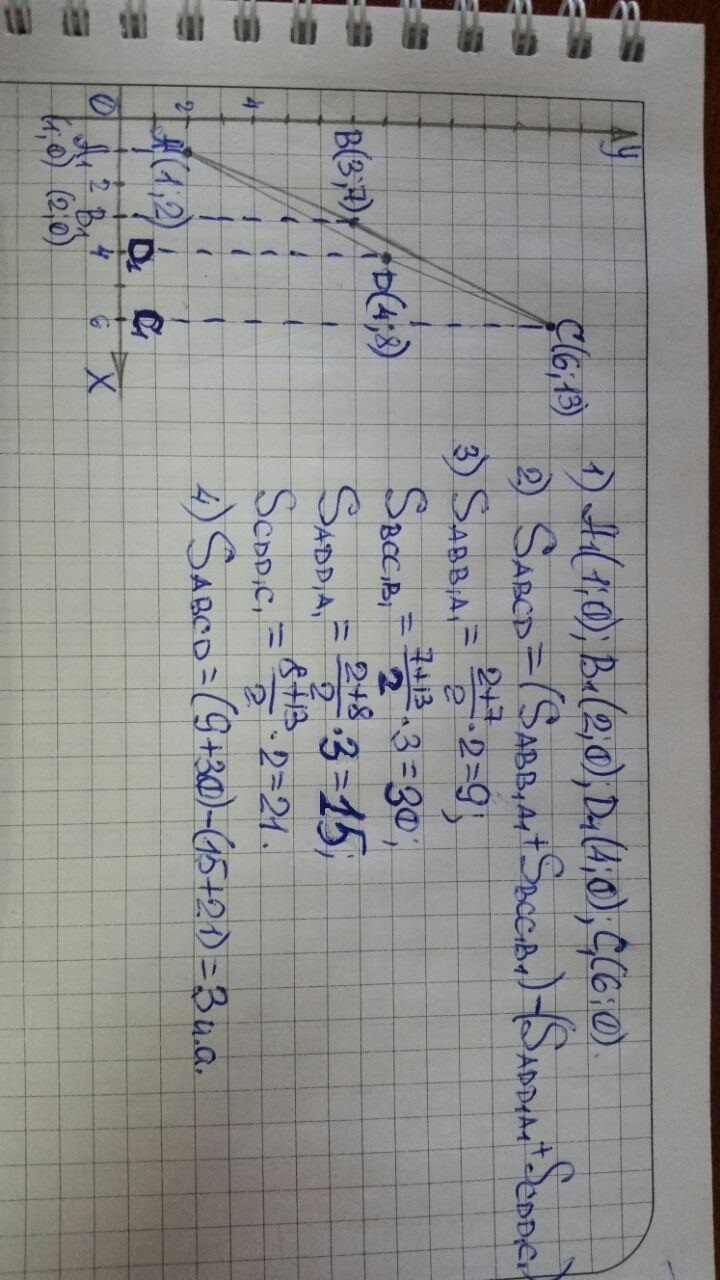 y
C(6;13)
B(3;7)
D(4;8)
4
2
A(1;2)
D₁ C₁
0 2 4 6 X
A₁ B₁
(1;0) (2;0)
1) A₁(1;0); B₁(2;0); D₁(4;0); C₁(6;0).
2) SABCD = (SABB₁A₁ + SBCC₁B₁) - (SADD₁A₁ + SCDD₁C₁)
3) SABB₁A₁ = 2+7/2 · 2 = 9;
SBCC₁B₁ = 7+13/2 · 3 = 30;
SADD₁A₁ = 2+8/2 · 3 = 15;
SCDD₁C₁ = 8+13/2 · 2 = 21.
4) SABCD = (9+30) - (15+21) = 3 и.а.